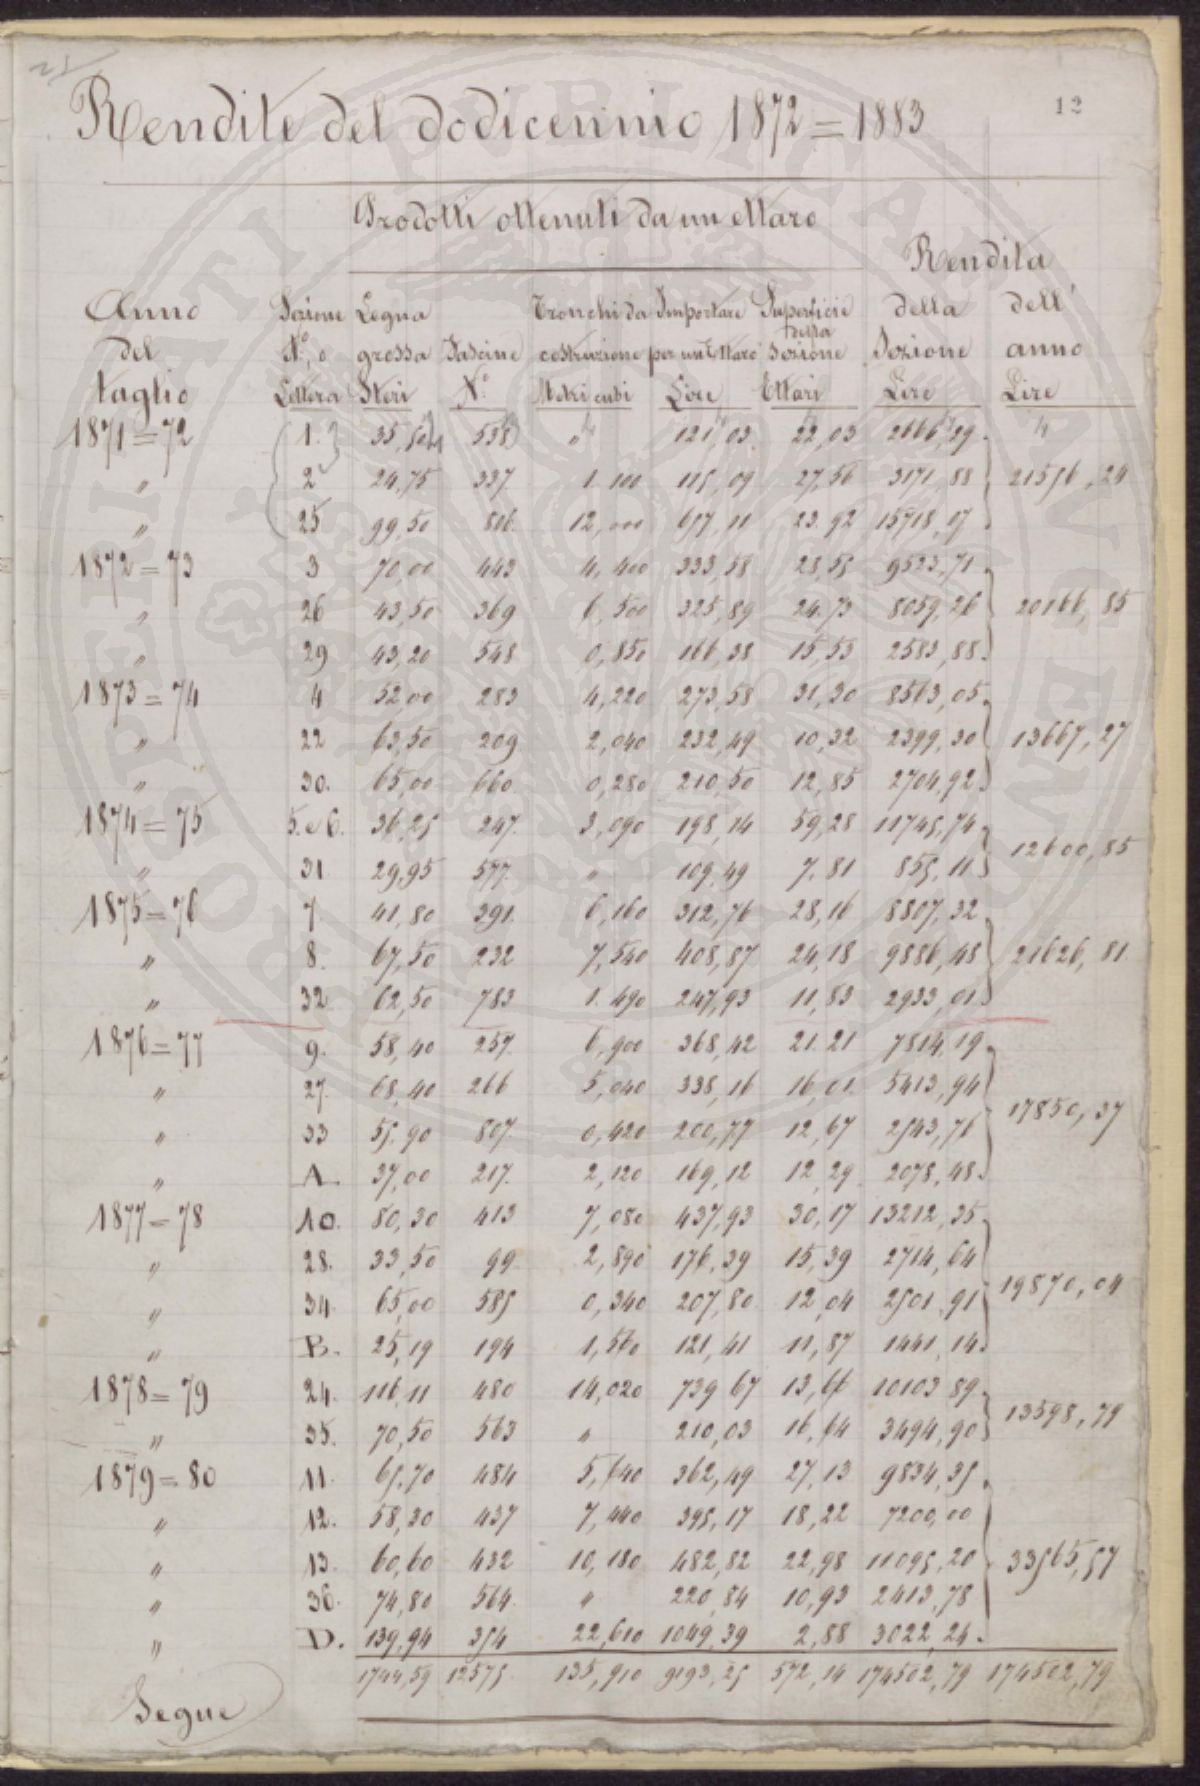 12
Rendite del dodicennio 1872=1883
Prodotti ottenuti da un ettaro
Rendita
Anno Sezione Legna Tronchi da Importare Superficie della dell'
del N.° o grossa Fascine costruzione per un Ettaro della Sezione Sezione anno
taglio Lettera Steri N.° Metri cubi Lire Ettari Lire Lire
1871=72 1. 35,50 538 " 121,03 22,03 2666,29 "
" 2 24,75 337 1.100 115,09 27,56 3171,88 21556,24
" 25 99,50 816 12,000 657,11 23.92 15718,07
1872=73 3 70,00 443 4,400 333,58 28,55 9523,71
" 26 43,50 369 6,500 325,89 24.73 8059,26 20166,85
" 29 43,20 548 0,850 166,38 15,53 2583,88
1873=74 4 52,00 283 4,220 273,58 31,30 8563,05
" 22 63,50 209 2,040 232,49 10,32 2399,30 13667,27
" 30. 65,00 660 0,280 210,50 12,85 2704,92
1874=75 5.e6. 36,25 247. 3,090 198,14 59,28 11745,74
" 31 29,95 577 " 109,49 7,81 855,11 12600,85
1875=76 7 41,80 391. 6,160 312,76 28,16 8807,32
" 8. 67,50 232 7,540 408,87 24,18 9886,48 21626,81
" 32 62,50 783 1.490 247,93 11,83 2933,01
1876=77 9. 58,40 257. 6,900 368,42 21.21 7814,19
" 27. 68,40 266 5,040 338,16 16,01 5413,94
" 33 55.90 807. 0,420 200,77 12,67 2543,76 17850,37
" A. 37,00 217. 2,120 169,12 12,29 2078,48
1877=78 10. 80,30 413 7,080 437,93 30,17 13212,35
" 28. 33,50 99 2,890 176,39 15,39 2714,64
" 34 65,00 585 0,340 207,80 12,04 2501,91 19870,04
" B. 25,19 194 1,560 121,41 11,87 1441,14
1878=79 24. 116,11 480 14,020 739,67 13,66 10103,89
" 35. 70,50 563 " 210,03 16,64 3494,90 13598,79
1879=80 11. 65,70 484 5,640 362,49 27,13 9834,35
" 12. 58,30 437 7,440 395,17 18,22 7200,00
" 13. 60,60 432 10,180 482,82 22,98 11095,20 33565,57
" 36. 74,80 564. " 220,84 10,93 2413,78
" D. 139,94 354 22,610 1049,39 2,88 3022,24
1744,59 12575 135,910 9193,25 572,14 174502,79 174502,79
Segue